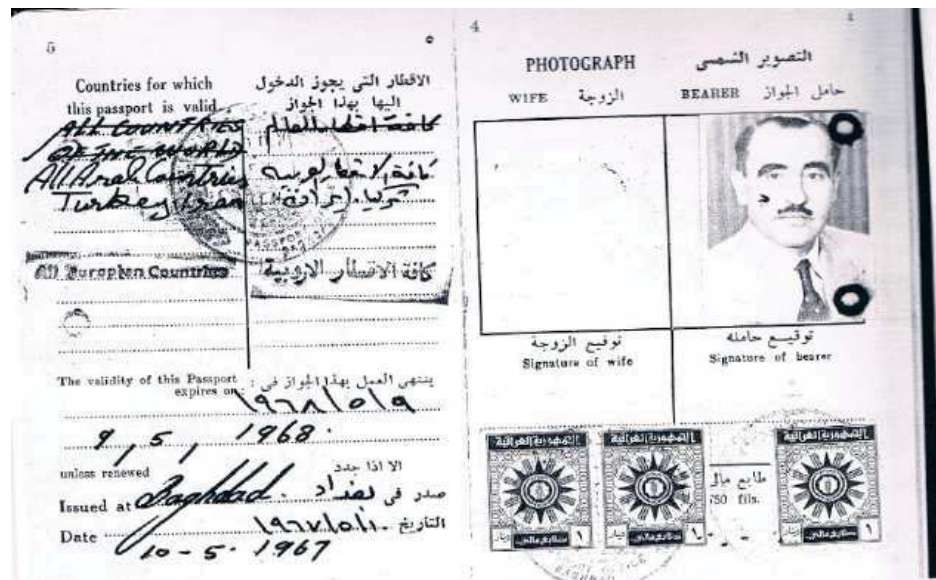 5
Countries for which
this passport is valid
الاقطار التى يجوز الدخول
اليها بهذا الجواز
ALL COUNTRIES
OF THE WORLD
كافة اقطار العالم
All Arab Countries
Turkey, Iran
كافة الاقطار العربية
تركيا، ايران
All European Countries
كافة الاقطار الاوربية
The validity of this Passport
expires on
ينتهى العمل بهذا الجواز فى :
١٩٦٨/٥/٩
9, 5, 1968.
unless renewed
الا اذا جدد
Issued at Baghdad.
صدر فى بغداد
Date
التاريخ ١٩٦٧/٥/١٠
10-5-1967
4
PHOTOGRAPH
التصوير الشمسى
WIFE الزوجة
BEARER حامل الجواز
توقيع الزوجة
Signature of wife
توقيع حامله
Signature of bearer
الجمهورية العراقية
الجمهورية العراقية
الجمهورية العراقية
طابع مالى
750 fils.
دينار ١
دينار ١
دينار ١